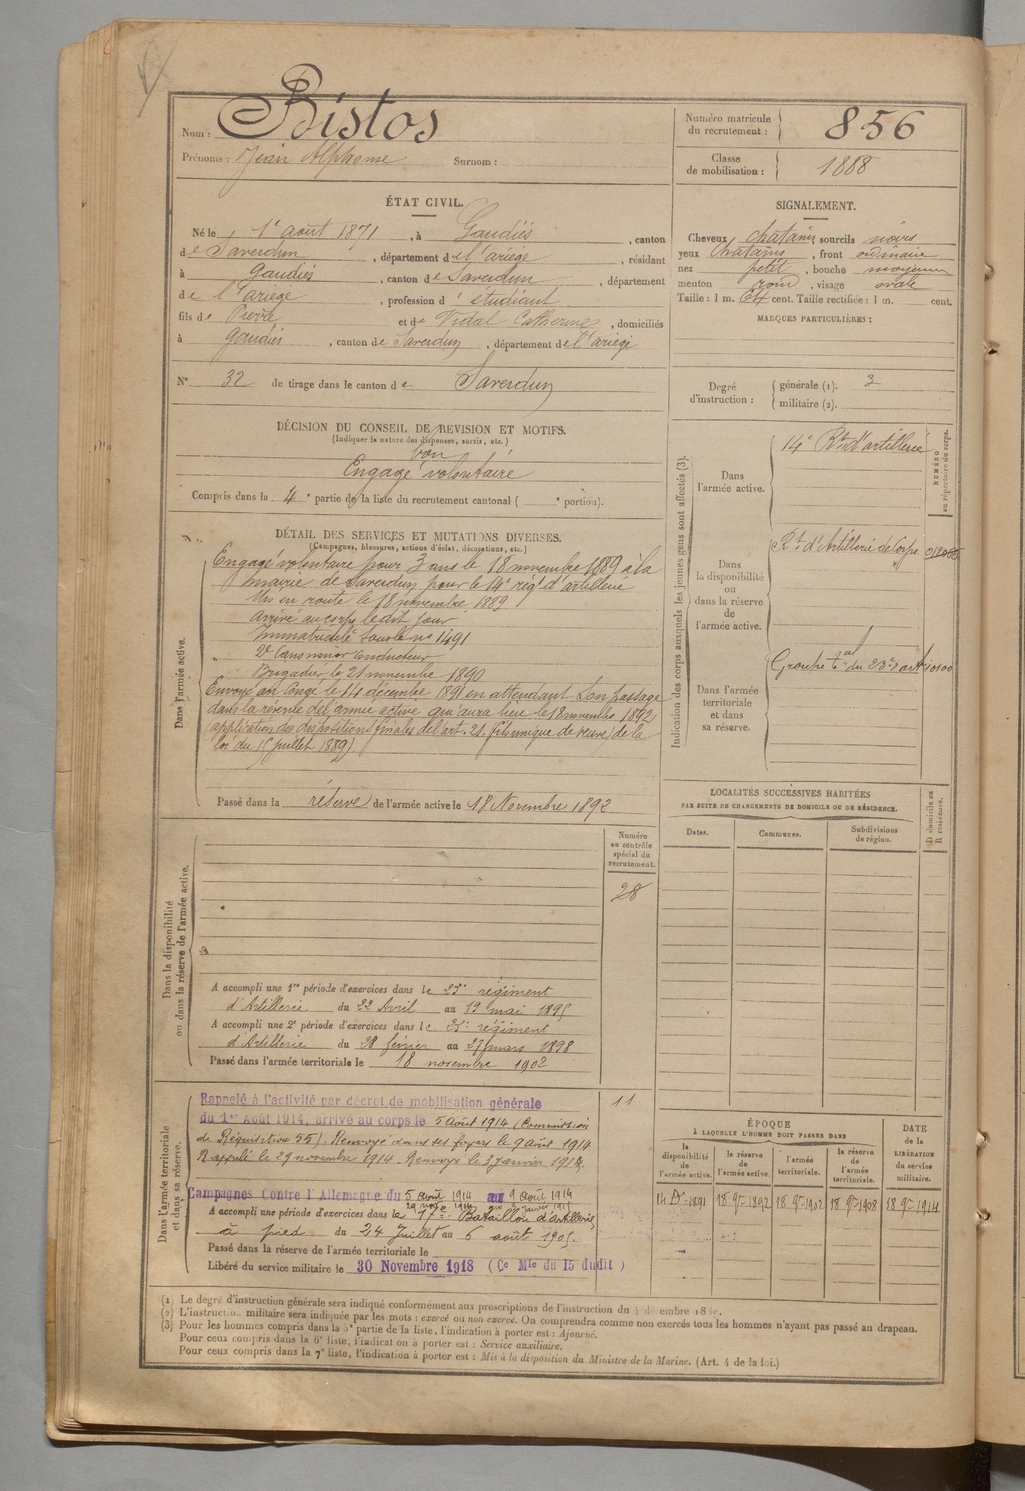 Nom : Bistos
Prénoms : Jean Alphonse Surnom :
Numéro matricule du recrutement : 856
Classe de mobilisation : 1888
ÉTAT CIVIL.
Né le 1er août 1871, à Gaudiès, canton
de Saverdun, département de l'ariège, résidant
à Gaudiès, canton de Saverdun, département
de l'ariège, profession d'étudiant
fils de Pierre et de Vidal Catherine, domiciliés
à Gaudiès, canton de Saverdun, département de l'ariège
N° 32 de tirage dans le canton de Saverdun
SIGNALEMENT.
Cheveux chatains sourcils noirs
yeux chatains, front ordinaire
nez petit, bouche moyenne
menton rond, visage ovale
Taille : 1 m. 64 cent. Taille rectifiée : 1 m. cent.
MARQUES PARTICULIÈRES :
Degré d'instruction : générale (1). 3
militaire (2).
DÉCISION DU CONSEIL DE REVISION ET MOTIFS.
(Indiquer la nature des dispenses, sursis, etc.)
bon
Engagé volontaire
Compris dans la 4e partie de la liste du recrutement cantonal ( e portion).
DÉTAIL DES SERVICES ET MUTATIONS DIVERSES.
(Campagnes, blessures, actions d'éclat, décorations, etc.)
Dans l'armée active.
Engagé volontaire pour 3 ans le 18 novembre 1889 à la
mairie de Saverdun pour le 14e rég' d'artillerie
Mis en route le 18 novembre 1889
Arrivé au corps le dit jour
Immatriculé sous le no 1491
2e Canonnier conducteur
Brigadier le 21 novembre 1890
Envoyé en Congé le 14 décembre 1891 en attendant son passage
dans la réserve de l'armée active qui aura lieu le 18 novembre 1892
(application des dispositions finales de l'art. 21. fils unique de veuve) de la
loi du 15 juillet 1889)
Passé dans la réserve de l'armée active le 18 Novembre 1892
Indication des corps auxquels les jeunes gens sont affectés (3).
NUMÉRO au répertoire du corps.
Dans l'armée active.
14e Rt d'artillerie
Dans la disponibilité ou dans la réserve de l'armée active.
Rt d'Artillerie de Corps
Dans l'armée territoriale et dans sa réserve.
Groupe tal du 23e d'art
LOCALITÉS SUCCESSIVES HABITÉES
PAR SUITE DE CHANGEMENTS DE DOMICILE OU DE RÉSIDENCE.
Dates. Communes. Subdivisions de région. D domicile ou R résidence.
Dans la disponibilité ou dans la réserve de l'armée active.
Numéro au contrôle spécial du recrutement.
28
A accompli une 1re période d'exercices dans le 23e régiment
d'Artillerie du 22 Avril au 19 mai 1895
A accompli une 2e période d'exercices dans le 23e régiment
d'Artillerie du 28 février au 27 mars 1898
Passé dans l'armée territoriale le 18 novembre 1902
Dans l'armée territoriale et dans sa réserve.
11
Rappelé à l'activité par décret de mobilisation générale
du 1er Août 1914, arrivé au corps le 5 Août 1914 (Commission
de Réquisition 55). Renvoyé dans ses foyers le 9 août 1914
Rappelé le 29 novembre 1914. Renvoyé le 3 Janvier
Campagnes Contre l'Allemagne du 5 août 1914 au 9 août 1914
A accompli une période d'exercices dans le 77e Bataillon d'artillerie
à pied du 24 Juillet au 6 août 1905.
Passé dans la réserve de l'armée territoriale le
Libéré du service militaire le 30 Novembre 1918 (Ce Mle du 15 dudit)
ÉPOQUE
À LAQUELLE L'HOMME DOIT PASSER DANS
la disponibilité de l'armée active. la réserve de l'armée active. l'armée territoriale. la réserve de l'armée territoriale.
DATE de la LIBÉRATION du service militaire.
14 Dre 1891 18 9re 1892 18 9re 1902 18 9re 1908 18 9re 1914
(1) Le degré d'instruction générale sera indiqué conformément aux prescriptions de l'instruction du 4 décembre
(2) L'instruction militaire sera indiquée par les mots : exercé ou non exercé. On comprendra comme non exercés tous les hommes n'ayant pas passé au drapeau.
(3) Pour les hommes compris dans la 5e partie de la liste, l'indication à porter est : Ajourné.
Pour ceux compris dans la 6e liste, l'indication à porter est : Service auxiliaire.
Pour ceux compris dans la 7e liste, l'indication à porter est : Mis à la disposition du Ministre de la Marine. (Art. 4 de la loi.)